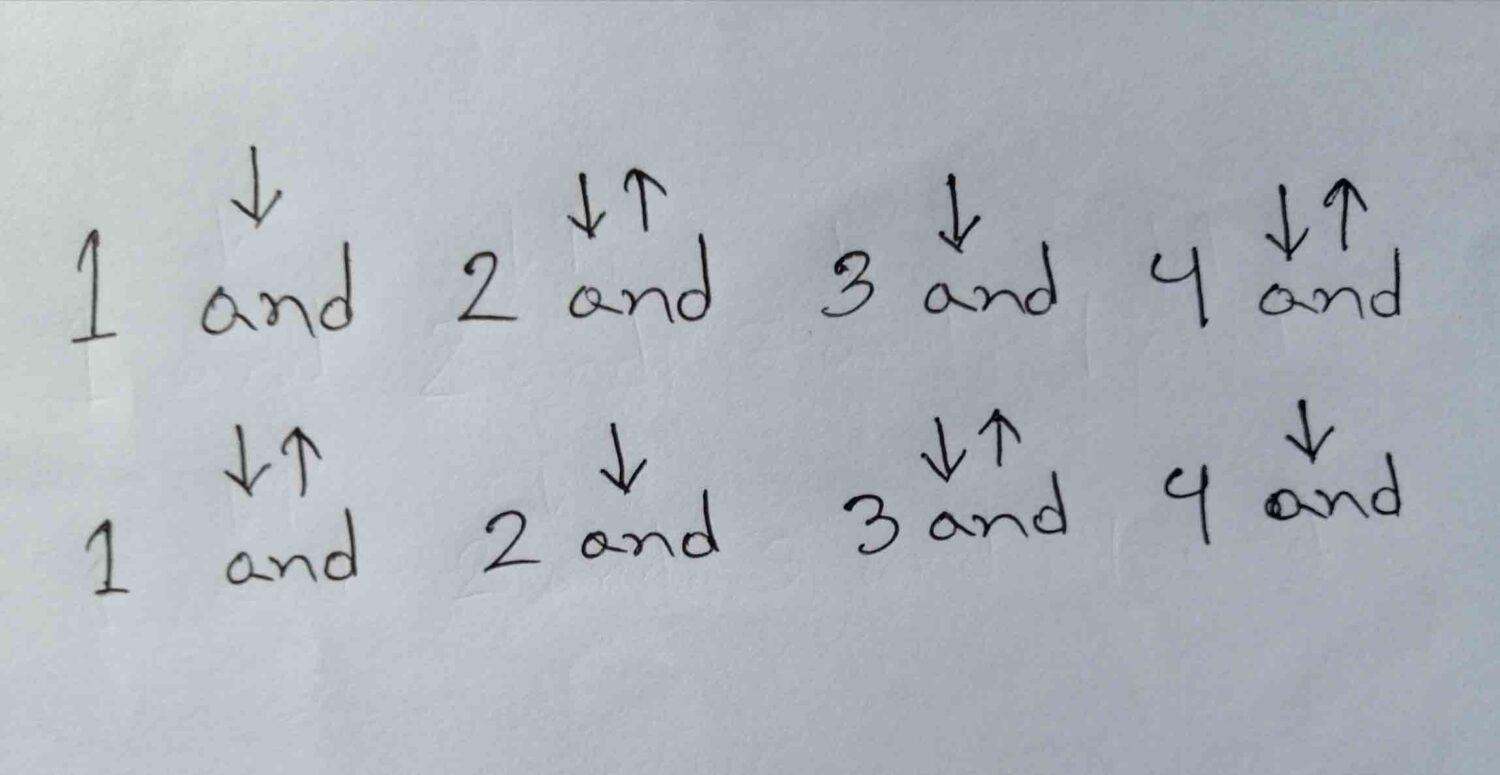 ↓ ↓↑ ↓ ↓↑
1 and 2 and 3 and 4 and
↓↑ ↓ ↓↑ ↓
1 and 2 and 3 and 4 and